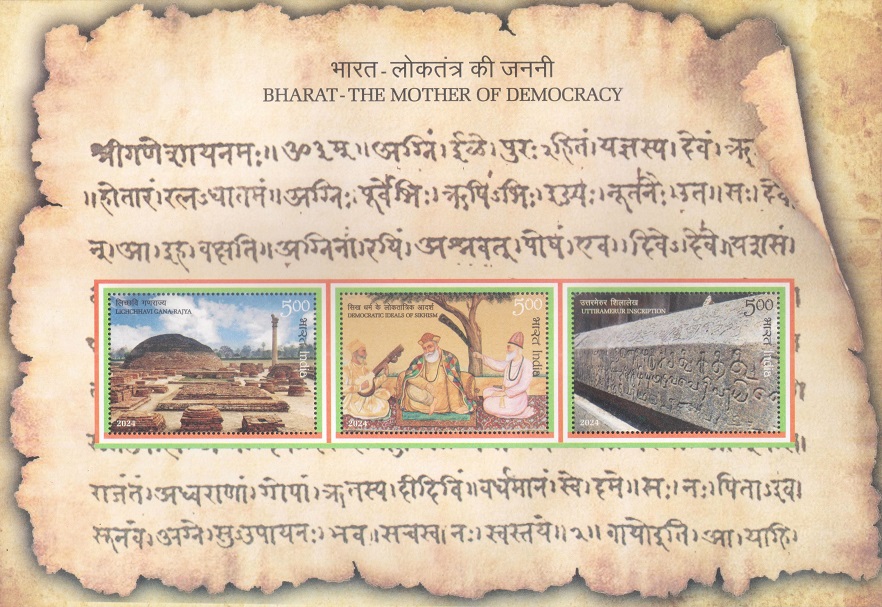 भारत - लोकतंत्र की जननी
BHARAT - THE MOTHER OF DEMOCRACY
श्रीगणेशायनमः॥ॐ३म्॥अग्निं।ईळे।पुरःऽहितं।यज्ञस्य।देवं।ऋ
॥होतारं।रत्नऽधातमं॥अग्निः।पूर्वेभिः।ऋषिऽभिः।ईड्यः।नूतनैः।उत॥सः।देवा
न्।आ।इह।वक्षति॥अग्निना।रयिं।अश्नवत्।पोषं।एव।दिवेऽदिवे॥यशसं
लिच्छवि गणराज्य
LICHCHHAVI GANA-RAJYA
500
भारत India
2024
सिख धर्म के लोकतांत्रिक आदर्श
DEMOCRATIC IDEALS OF SIKHISM
500
भारत India
2024
उत्तरमेरुर शिलालेख
UTTIRAMERUR INSCRIPTION
500
भारत India
2024
राजंतं।अध्वराणां।गोपां।ऋतस्य।दीदिविं॥वर्धमानं।स्वे।दमे॥सः।नः।पिताऽइव।
सूनवे।अग्ने।सुऽउपायनः।भव।सचस्व।नः।स्वस्तये॥२॥वायो इति।आ।याहि।